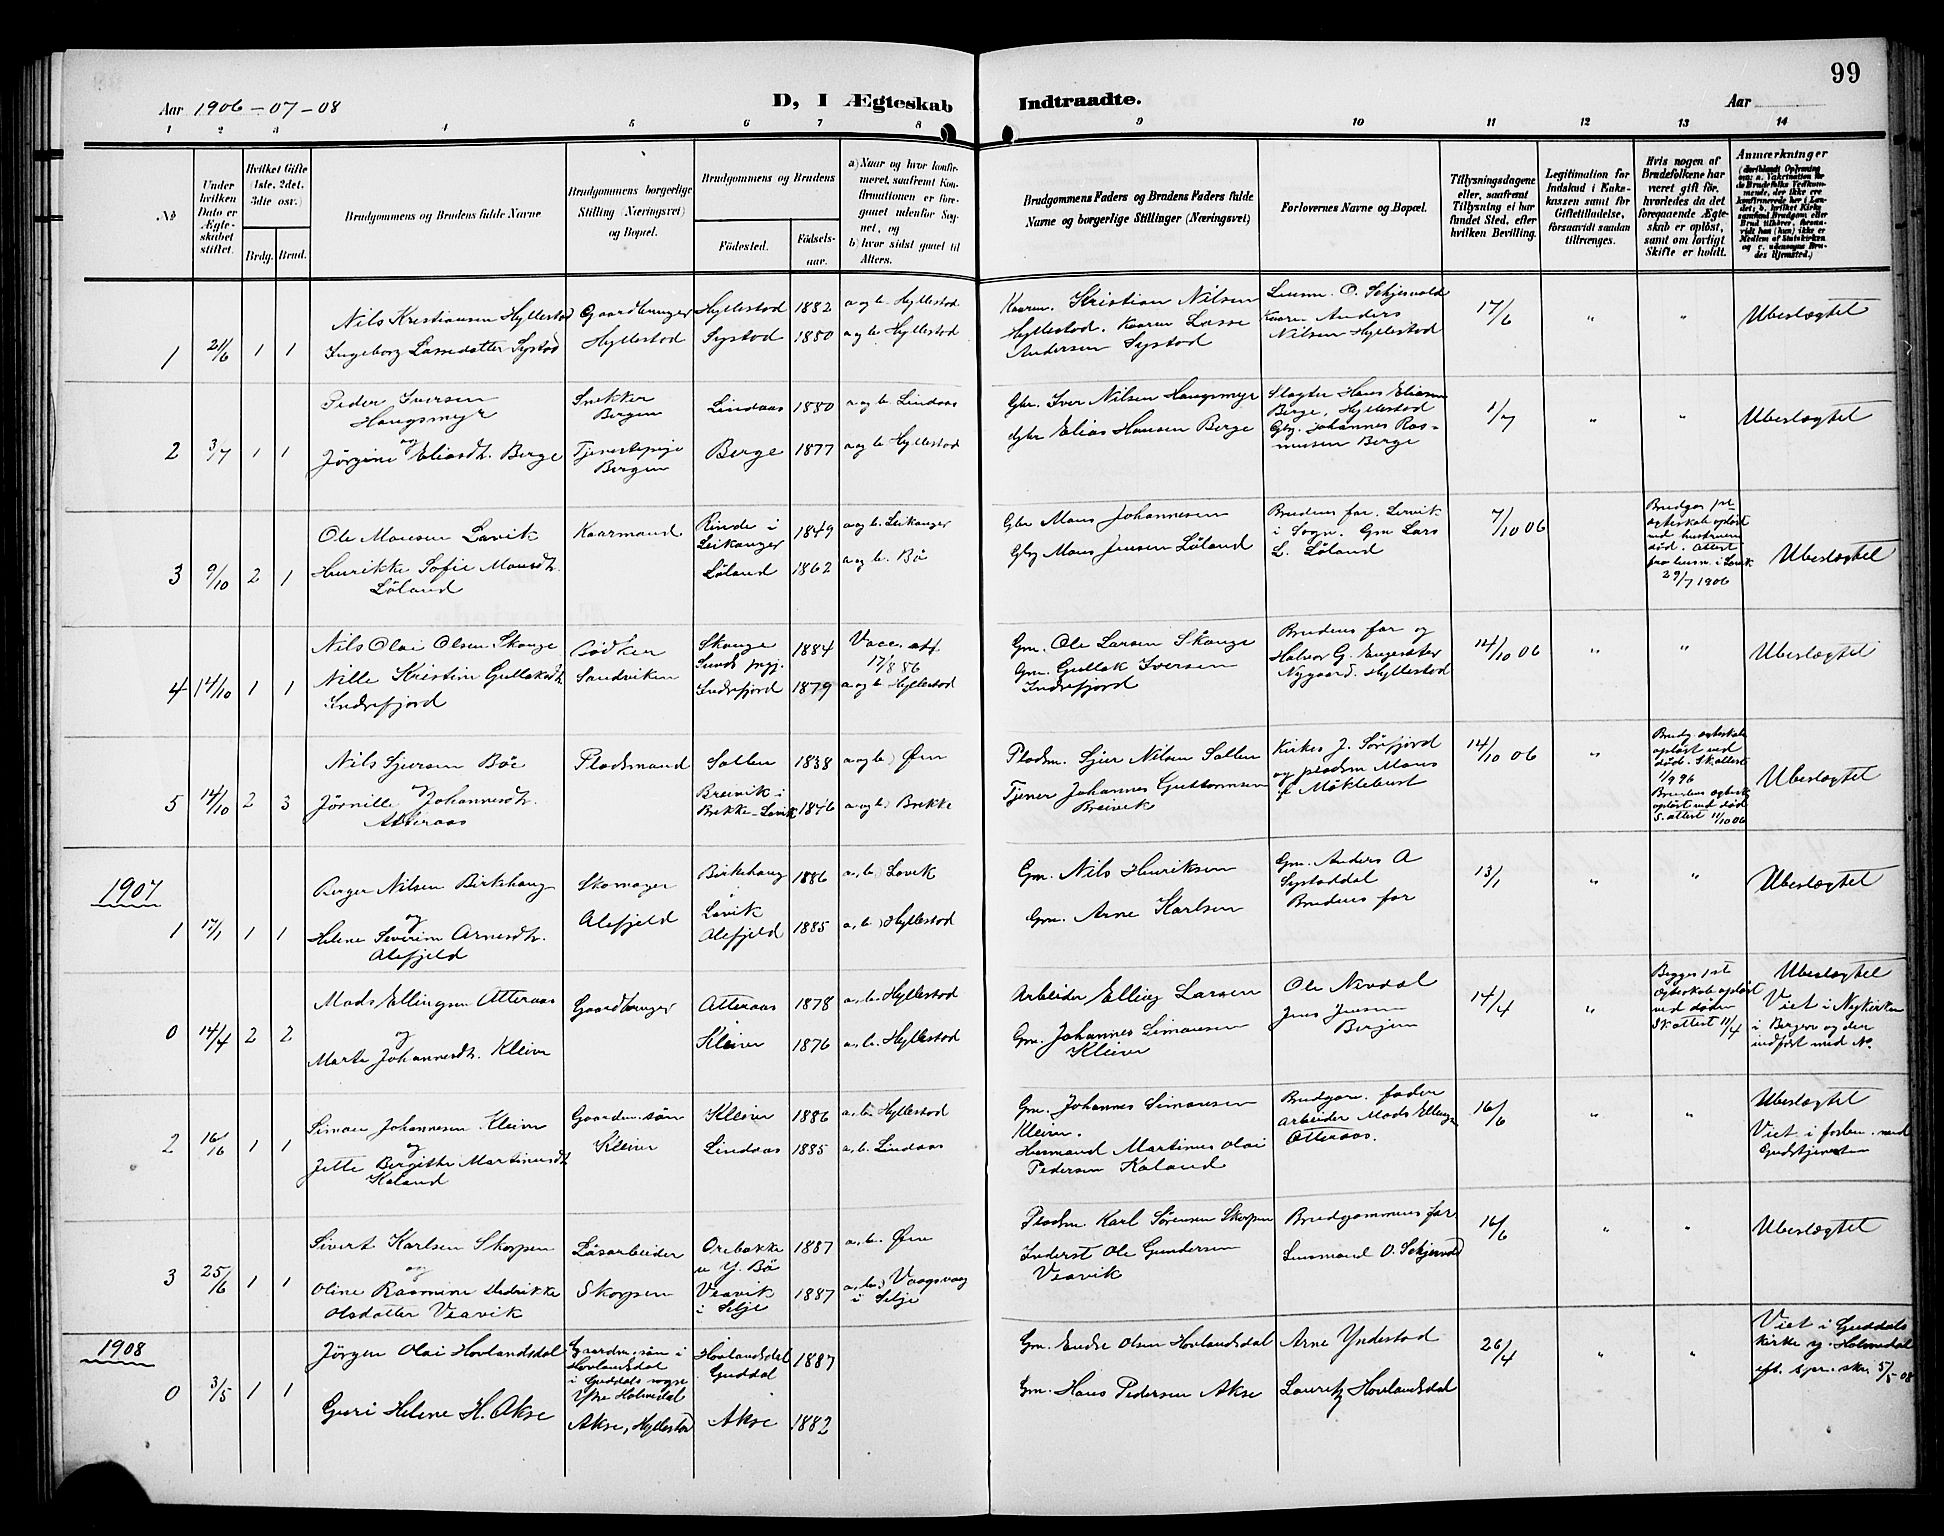 99
Aar 1906-07-08
D, I Ægteskab Indtraadte.
Aar
1 2 3 4 5 6 7 8 9 10 11 12 13 14
No
Under hvilken Dato er Ægteskabet stiftet.
Hvilket Gifte (1ste, 2det, 3die osv.)
Brdg. Brud.
Brudgommens og Brudens fulde Navne
Brudgommens borgerlige Stilling (Næringsvei) og Bopæl.
Brudgommens og Brudens
Fødested. Fødselsaar.
a) Naar og hvor konfirmeret, saafremt Konfirmationen er foregaaet udenfor Sognet, og
b) hvor sidst gaaet til Alters.
Brudgommens Faders og Brudens Faders fulde Navne og borgerlige Stillinger (Næringsvei)
Forlovernes Navne og Bopæl.
Tillysningsdagene eller, saafremt Tillysning ei har fundet Sted, efter hvilken Bevilling.
Legitimation for Indskud i Enkekassen samt for Giftetilladelse, forsaavidt saadan tiltrænges.
Hvis nogen af Brudefolkene har været gift før, hvorledes da det foregaaende Ægteskab er opløst, samt om lovligt Skifte er holdt.
Anmærkninger
1 21/6 1 1
Nils Kristiansen Hyllestad
Ingeborg Lassedatter Systad
Gaardbruger
Hyllestad
Hyllestad 1882 a og b. Hyllestad
Systad 1880 a og b. Hyllestad
Kaarm. Kristian Nilsen
Hyllestad. Kaarm Lasse
Andersen Systad
Lensm. O. Schjesvold
Kaarm Anders
Nilsen Hyllestad
17/6 " " Ubeslægtet
2 3/7 1 1
Peder Iversen
Haugsmyr
og
Jørgine Eliasdtr. Berge
Snekker
Bergen
Tjenestepige
Bergen
Lindaas 1880 a og b Lindaas
Berge 1877 a og b Hyllestad
Gbr. Iver Nilsen Haugsmyr
Gbr Elias Hansen Berge
Slagter Hans Eliasen
Berge, Hyllestad
Gbg. Johannes Rasmusen Berge
1/7 " " Ubeslægtet
3 9/10 2 1
Ole Monsen Lavik
Henrikke Sofie Monsdtr.
Løland
Kaarmand
Rinde i
Leikanger 1849 a og b. Leikanger
Løland 1862 a og b. Bø
Gbr Mons Johannesen
Gbg Mons Jensen Løland
Brudens far. Lervik
i Sogn. Gm Lars
L. Løland
7/10 06
Brudgos 1ste
egteskab opløst
ved hustruens
død. Attest
fra lensm. i Lavik
29/7 1906
Ubeslægtet
4 14/10 1 1
Nils Olai Olsen Skauge
Nille Kristine Gullaksdtr
Indrefjord
Bødker
Sandviken
Skauge
Sunds pgj. 1884 Vacc. att.
17/8 86
Indrefjord 1879 a og b Hyllestad
Gm. Ole Larsen Skauge
Gm. Gullak Iversen
Indrefjord
Brudens far og
Halvor G. Engesæter
Nygaard. Hyllestad
14/10 06 " " Ubeslægtet
5 14/10 2 3
Nils Sjursen Bøe
og
Jørnille Johannesdtr.
Atteraas
Pladsmand
Sollen 1838 a og b) Øen
Breivik i
Brekke-Lavik 1846 a og b) Brekke
Pladsm. Sjur Nilsen Sollen
Tjener Johannes Guttormsen
Breivik
Kirkes. J. Sørefjord
og pladsm Mons
Møklebust
14/10 06 "
Brudg egteskab
opløst ved
død. Sk attest
1/9 96
Brudens egtesk
opløst ved død
S. attest 11/10 06
Ubeslægtet
1907
1 17/1 1 1
Berger Nilsen Birkehaug
og
Helene Severine Arnesdtr.
Alefjeld
Skomager
Alefjeld
Birkehaug
Lavik 1886 a, b) Lavik
Alefjeld 1885 a, b) Hyllestad
Gm. Nils Henriksen
Gm. Arne Karlsen
Gm. Anders A
Systaddal
Brudens far
13/1 " " Ubeslægtet
0 14/4 2 2
Mads Ellingsen Atteraas
og
Marte Johannesdtr. Kleiven
Gaardbruger
Atteraas 1878 a, b. Hyllestad
Kleiven 1876 a, b. Hyllestad
Arbeider Elling Larsen
Gm. Johannes Simonsen
Kleiven
Ole Nevdal
Jens Jensen
Bergen
14/4 "
Begges 1st
egteskab opløst
ved døden
Sk attest 11/4
Ubeslægtet
Viet i Nykirken
i Bergen og der
indført med No.
2 16/16 1 1
Simon Johannesen Kleiven
og
Jette Bergitte Martinusdtr
Kaland
Gaardm. søn
Kleiven
Kleiven 1886 a, b. Hyllestad
Lindaas 1885 a, b. Lindaas
Gm. Johannes Simonsen
Kleiven.
Husmand Martinus Olai
Pedersen Kaland
Brudgom. fader
Arbeider Mads Ellings
Atteraas.
16/6 " " Ubeslægtet
Viet i forbin. med
Gudstjenesten
3 25/6 1 1
Sivert Karlsen Skorpen
og
Oline Rasmine Hedrikke
Olsdatter Veavik
Løsarbeider
Skorpen
Orebakke
n Y. Bø 1887 a, b. Øen
Veavik
i Selje 1887 a, b) Vaagsvaag
i Selje
Pladsm. Karl Sørensen Skorpen
Inderst Ole Gundersen
Veavik
Brudgommens far
Lensmand O. Schjesvold
16/6 " " Ubeslægtet
1908
0 3/5 1 1
Jørgen Olai Hovlandsdal
Guri Helene H. Akse
Gaardm. søn i
Hovlandsdal
i Guddals sogn
Ytre Holmedal
Akse, Hyllestad
Hovlandsdal
Guddal 1887
Akse 1882
Gm. Endre Olsen Hovlandsdal
Gm. Hans Pedersen Akse
Arne Yndestad
Lauritz Hovlandsdal
26/4 " "
Viet i Guddals
kirke y. Holmedal
eft. spr. skr. 5/5 08